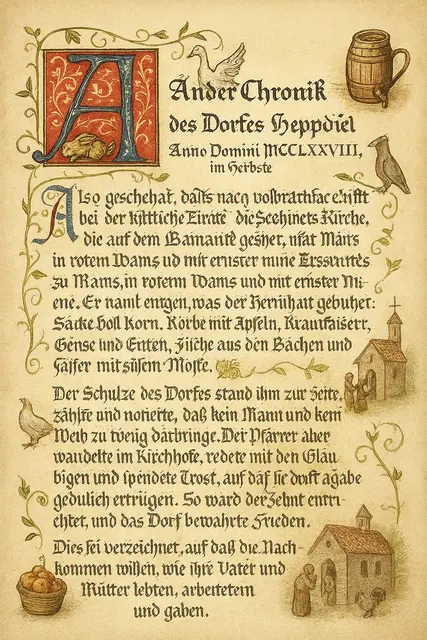 Ander Chronik
des Dorfes Heppdiel
Anno Domini MCCLXXVIII,
im Herbste
Also geschehat, daſts nacŋ
bei der die Kirche,
die auf dem
in rotem Wams ud mit ernster mine
zu Mams, in rotem Wams und mit ernster Mi-
ene. Er namt entgen, was der Herrlihait gebuhret:
Säcke voll Korn. Körbe mit Apfeln, Krautfaiserr,
Gense und Enten, Fiſche aus den Bächen und
Faiſer mit süſsem Moſte.
Der Schulze des Dorfes stand ihm zur Seite,
zählte und notierte, daß kein Mann und kein
Weib zu wenig darbringe. Der Pfarrer aber
wandelte im Kirchhofe, redete mit den Gläu
bigen und spendete Trost, auf daß sie agabe
gedulich ertrügen. So ward der Zehnt entri-
chtet, und das Dorf bewahrte Frieden.
Dies sei verzeichnet, auf daß die Nach-
kommen wißen, wie ihre Vater und
Mütter lebten, arbeitetem
und gaben.